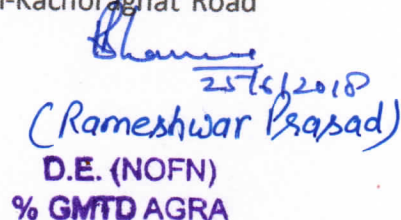 -Kachoraghat Road
25/6/2018
(Rameshwar Prasad)
D.E. (NOFN)
% GMTD AGRA